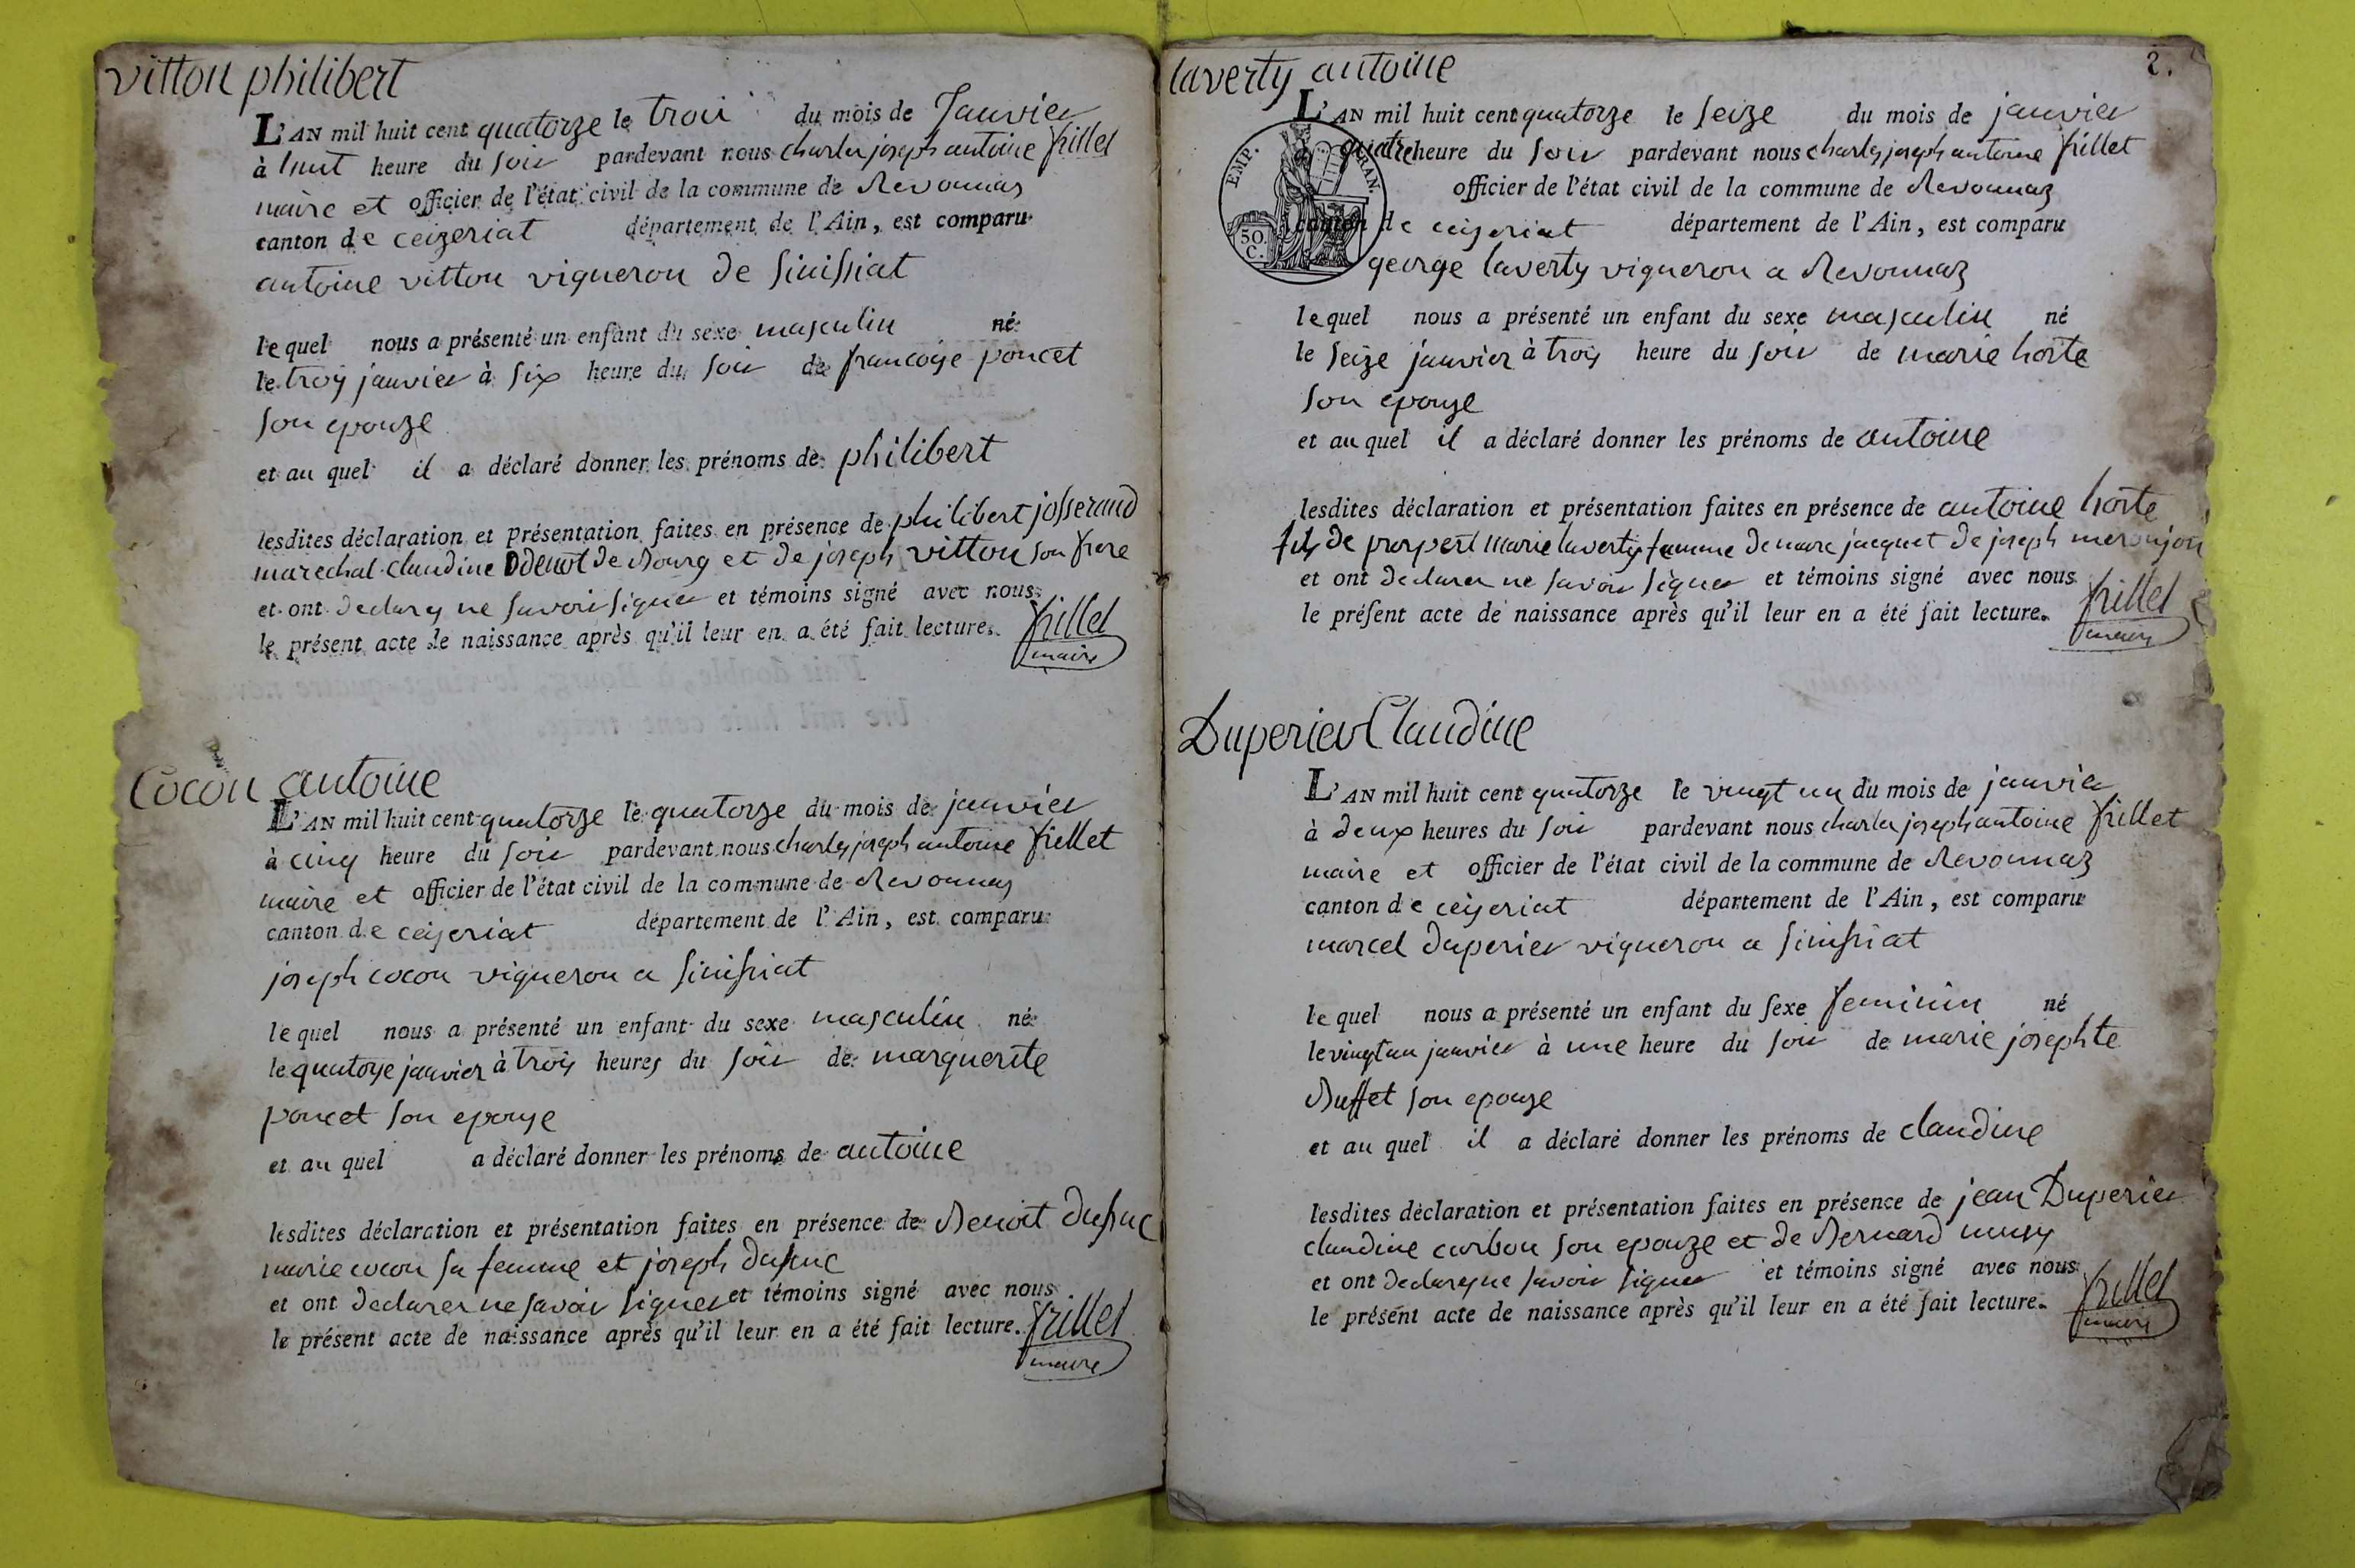 vitton philibert
L'AN mil huit cent quatorze le trois du mois de Janvier
à huit heure du soir pardevant nous charles joseph antoine frillet
maire et officier de l'état civil de la commune de Revonnas
canton de ceizeriat département de l'Ain, est comparu
antoine vitton vigneron de Sinissiat
lequel nous a présenté un enfant du sexe masculin né
le troy janvier à six heure du soir de francoise poncet
son epouze
et au quel il a déclaré donner les prénoms de philibert
lesdites déclaration et présentation faites en présence de philibert josserand
marechal claudine de Bourg et de joseph vitton son frere
et ont declarez ne savoir signer et témoins signé avec nous
le présent acte de naissance après qu'il leur en a été fait lecture. frillet
maire
Cocon antoine
L'AN mil huit cent quatorze le quatorze du mois de janvier
à cinq heure du soir pardevant nous charles joseph antoine frillet
maire et officier de l'état civil de la commune de Revonnas
canton de ceizeriat département de l'Ain, est comparu
joseph cocon vigneron a Sinissiat
lequel nous a présenté un enfant du sexe masculin né
le quatorze janvier à trois heures du soir de marguerite
poncet son epouze
et au quel a déclaré donner les prénoms de antoine
lesdites déclaration et présentation faites en présence de Benoit dufuc
marie cocon sa femme et joseph dufuc
et ont declarer ne savoir signer et témoins signé avec nous
le présent acte de naissance après qu'il leur en a été fait lecture. frillet
maire
2.
laverty antoine
L'AN mil huit cent quatorze le seize du mois de janvier
à quatre heure du soir pardevant nous charles joseph antoine frillet
officier de l'état civil de la commune de Revonnaz
canton de ceizeriat département de l'Ain, est comparu
EMP. FRAN.
50. C.
george laverty vigneron a Revonnaz
lequel nous a présenté un enfant du sexe masculin né
le seize janvier à trois heure du soir de marie horte
son epouze
et au quel il a déclaré donner les prénoms de antoine
lesdites déclaration et présentation faites en présence de antoine horte
fils de prospert marie laverty femme de marc jacquet de joseph
et ont declarer ne savoir signer et témoins signé avec nous
le présent acte de naissance après qu'il leur en a été fait lecture. frillet
maire
Duperier Claudine
L'AN mil huit cent quatorze le vingt un du mois de janvier
à deux heures du soir pardevant nous charles joseph antoine frillet
maire et officier de l'état civil de la commune de Revonnaz
canton de ceizeriat département de l'Ain, est comparu
marcel duperier vigneron a Sinissiat
lequel nous a présenté un enfant du sexe feminin né
le vingt un janvier à une heure du soir de marie josephte
Buffet son epouze
et au quel il a déclaré donner les prénoms de claudine
lesdites déclaration et présentation faites en présence de jean Duperier
claudine carbon son epouze et de Bernard
et ont declarez ne savoir signer et témoins signé avec nous
le présent acte de naissance après qu'il leur en a été fait lecture. frillet
maire